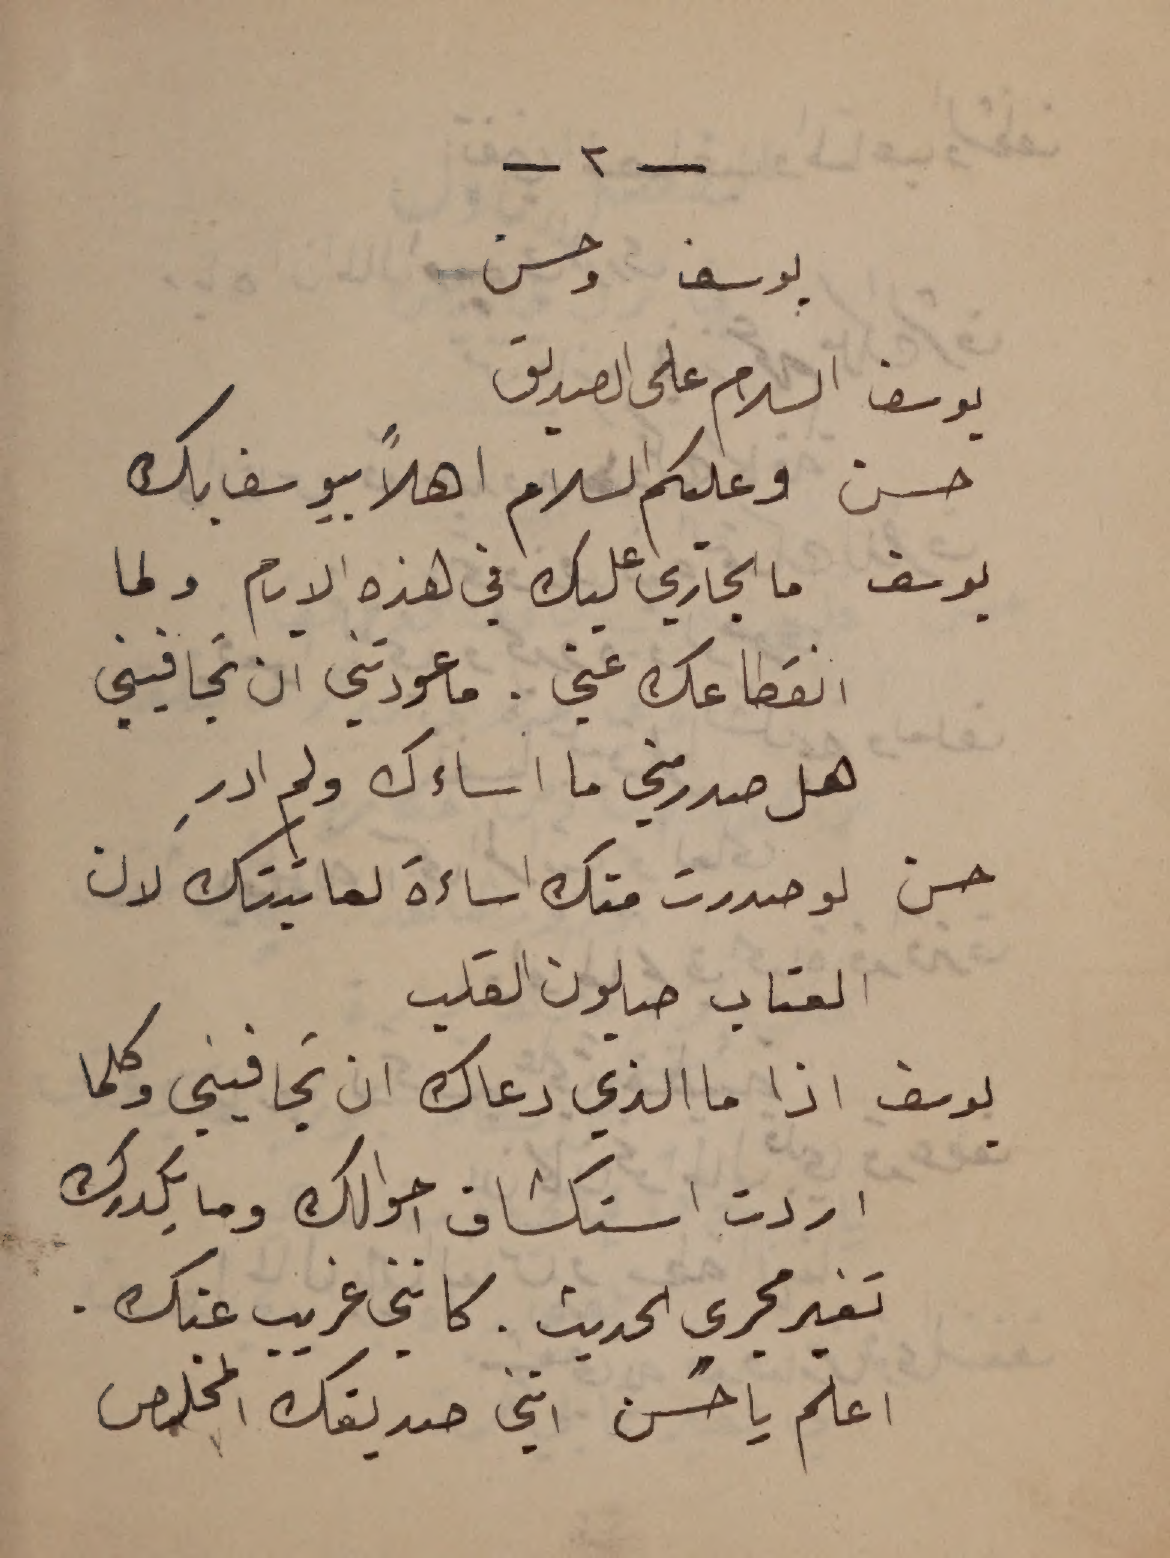 — ٢ —
يوسف وحسن
يوسف السلام على الصديق
حسن وعليكم السلام اهلاً بيوسف بك
يوسف ما الجاري عليك في هذه الايام ولما
انقطاعك عني . ما عودتني ان تجافيني
هل صدر مني ما اساءك ولم ادرِ
حسن لو صدرت منك اساءة لعاتبتك لان
العتاب صابون القلب
يوسف اذا ما الذي دعاك ان تجافيني وكلما
اردت استكشاف احوالك وما يكدرك
تغير مجرى الحديث . كانني غريب عنك .
اعلم يا حسن انني صديقك المخلص